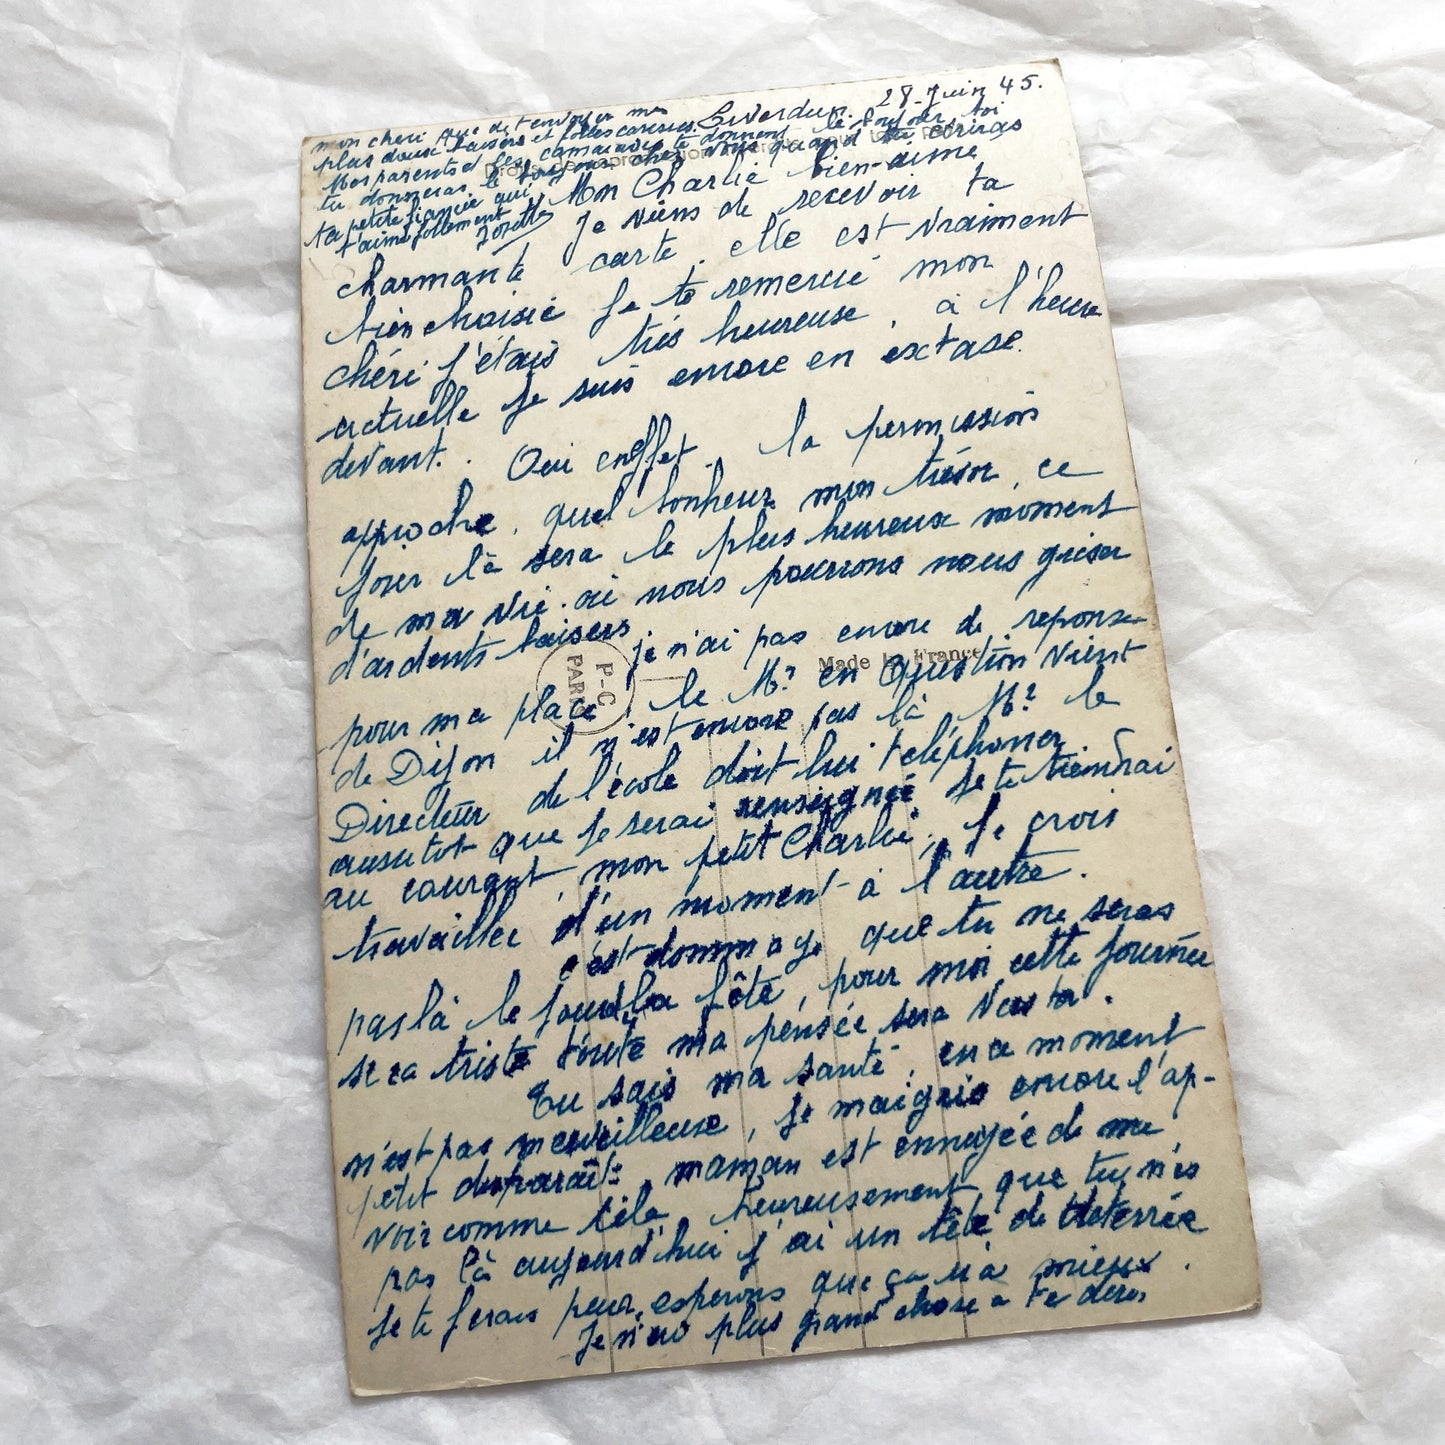 Liverdun. 28-Juin 45.
Mon Charlie bien-aimé
Je viens de recevoir ta
charmante carte. elle est vraiment
bien choisie je te remercie mon
chéri j'étais très heureuse, à l'heure
actuelle je suis encore en extase
devant. Oui en effet. la permission
approche, quel bonheur mon trésor, ce
jour là sera le plus heureux moment
de ma vie. où nous pourrons nous griser
d'ardents baisers
je n'ai pas encore de reponse
pour ma place, le Mr en question vient
de Dijon il n'est encore pas là, Mr le
Directeur de l'école doit lui téléphoner
aussitot que je serai renseignée je te tiendrai
au courant, mon petit Charlie, je crois
travailler d'un moment à l'autre.
c'est dommage que tu ne seras
pas là le jour de la fête, pour moi cette journée
sera triste toute ma pensée sera vers toi.
Tu sais ma santé, en ce moment
n'est pas merveilleuse, je maigris encore l'ap-
petit disparaît, maman est ennuyée de me
voir comme cela, heureusement que tu n'es
pas là aujourd'hui j'ai un tête de déterrée
je te ferais peur, esperons que ça ira mieux.
Je n'ai plus grand chose à te dire,
mon chéri que de t'envoyer mes
plus doux baisers et folles caresses.
Mes parents et les camarades te donnent le bonjour toi
tu donneras le bonjour chez vous quand tu écriras
ta petite fiancée qui
t'aime follement
Josette
Made in France
P-C
PARIS